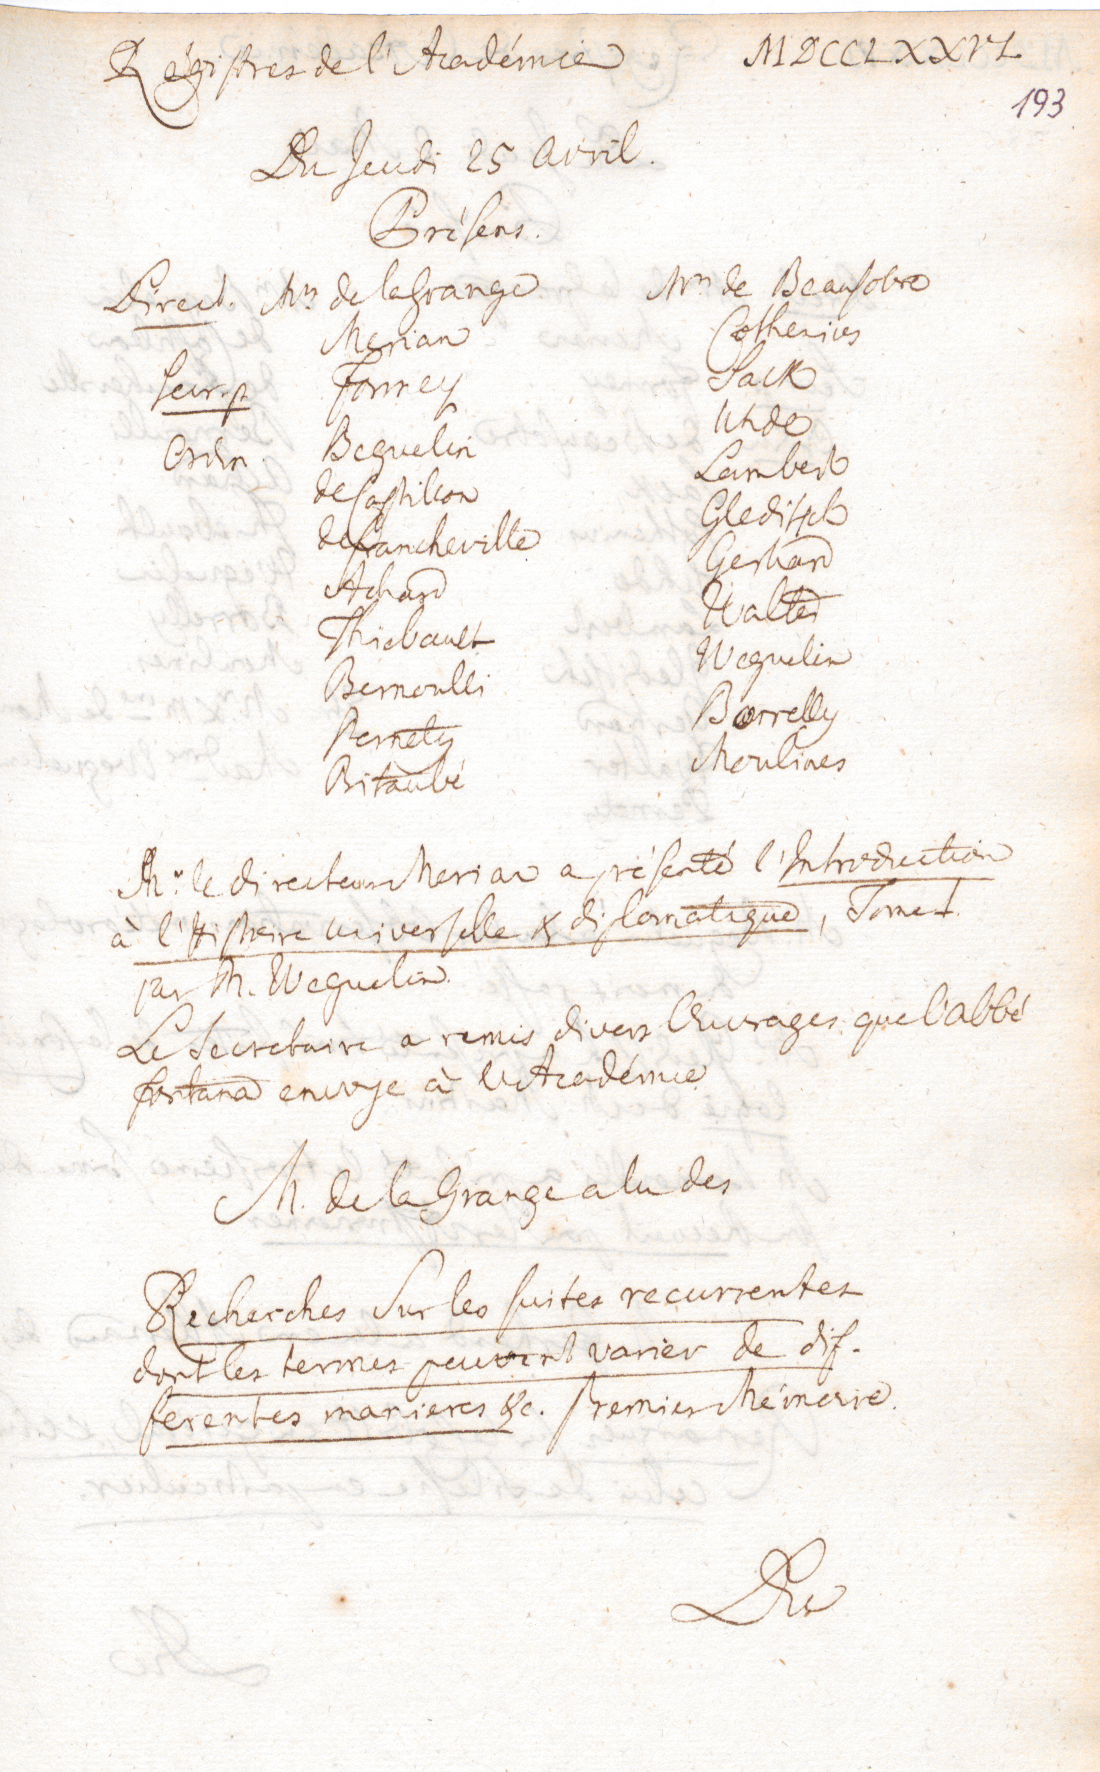 Régistres de l'Académie MDCCLXXVI
193
Du Jeudi 25 Avril.
Présens.
Direct. Mrs de la Grange
Merian
Secr. p Formey
Ordin. Beguelin
de Castillon
de Francheville
Achard
Thiebault
Bernoulli
Pernety
Bitaubé
Mrs de Beausobre
Cothenius
Sack
Uhde
Lambert
Gleditsch
Gerhard
Walter
Weguelin
Borrelly
Moulines
Mr. le directeur Merian a présenté l'Introduction
à l'Histoire universelle & diplomatique, Tome I.
par M. Weguelin.
Le Secretaire a remis divers Ouvrages que l'abbé
fontana envoye à l'Académie
M. de la Grange a lu des
Recherches Sur les suites recurrentes
dont les termes peuvent varier de dif-
ferentes manieres &c. Premier Mémoire.
Du